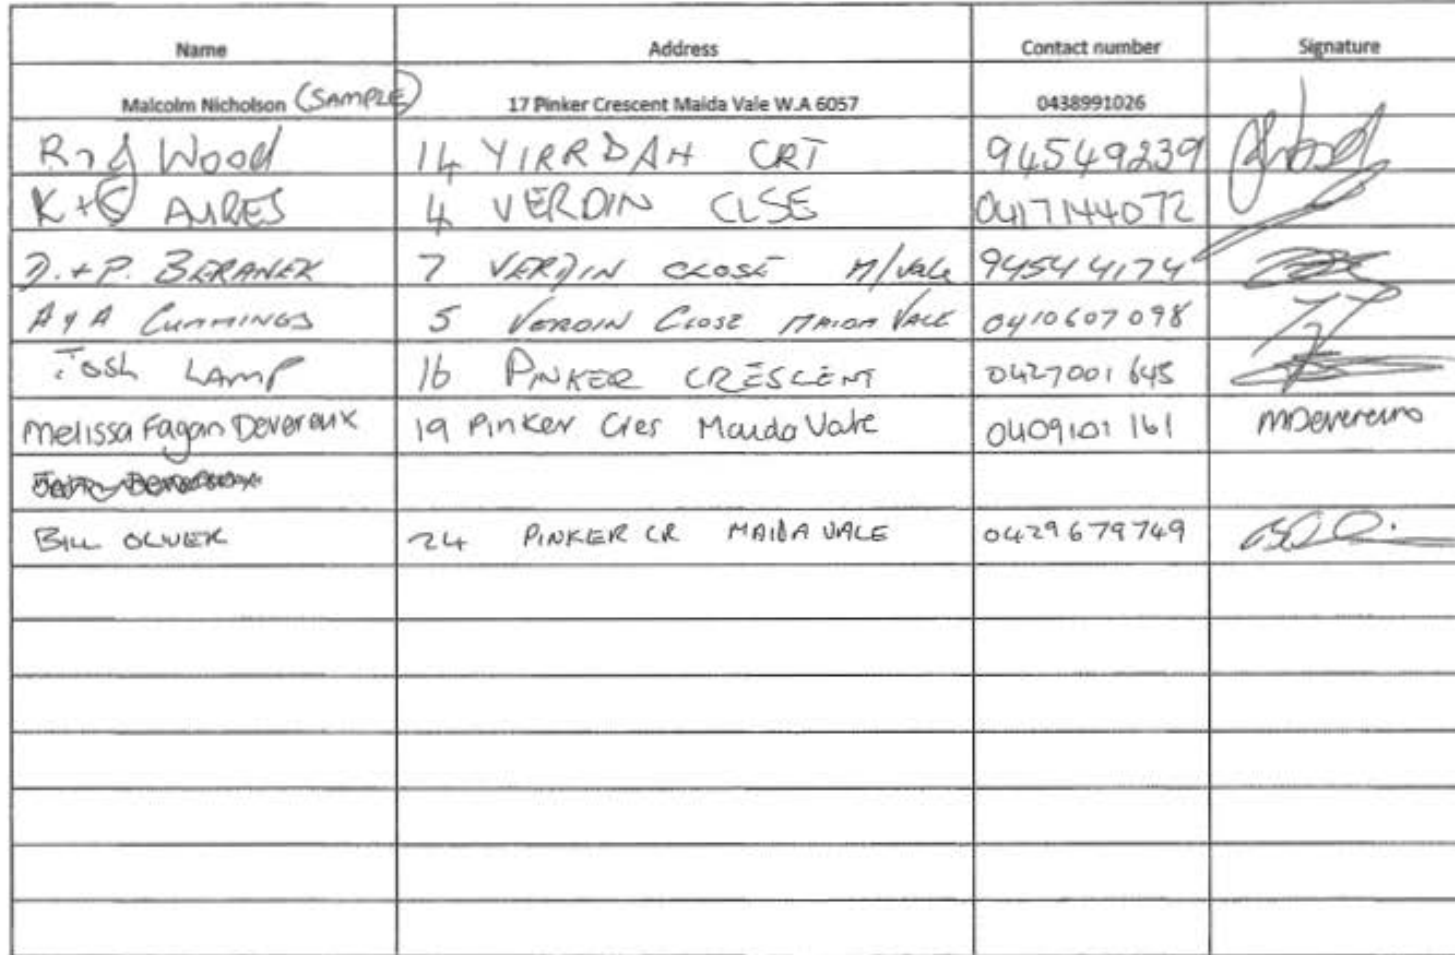 Name Address Contact number Signature
Malcolm Nicholson (SAMPLE) 17 Pinker Crescent Maida Vale W.A 6057 0438991026
Wood 14 YIRRDAH CRT 94549239
AYRES 4 VERDIN CLSE 0417144072
D.+P. BERANEK 7 VERDIN CLOSE M/Vale 94544174
A & A CUMMINGS 5 VERDIN CLOSE MAIDA VALE 0410607098
Josh LAMP 16 PINKER CRESCENT 0427001645
Melissa Fagan Devereux 19 Pinker Cres Maida Vale 0409101161 MDevereux
BILL OLIVER 24 PINKER CR MAIDA VALE 0429679749